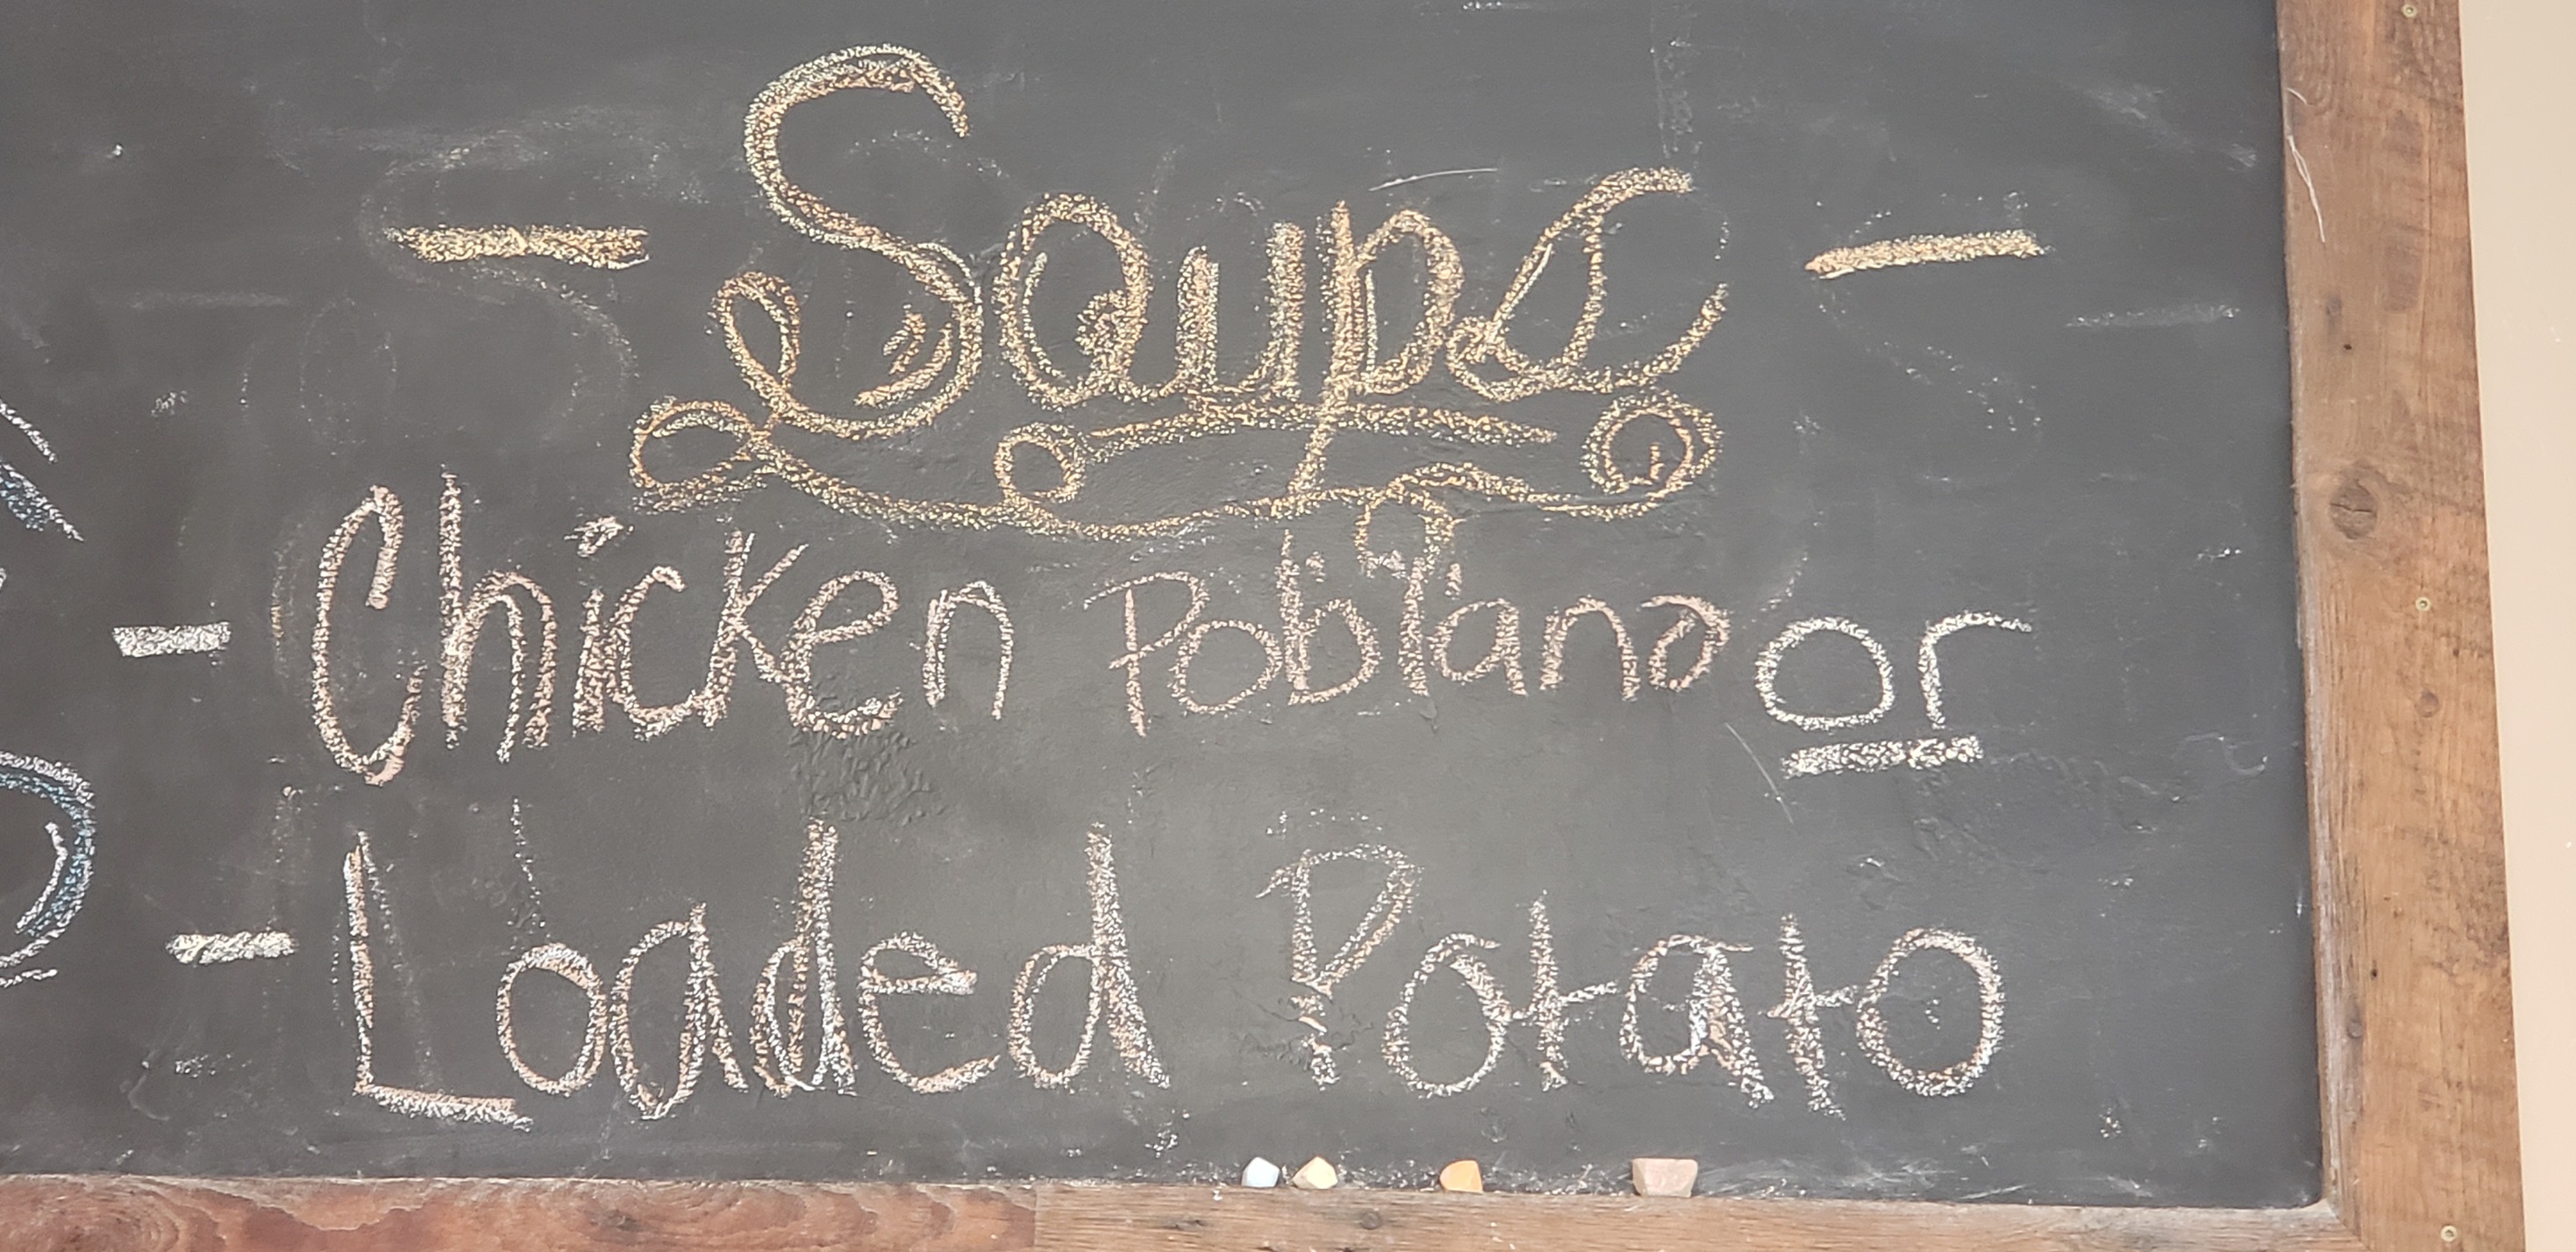 - Soups -
- Chicken Poblano or
- Loaded Potato